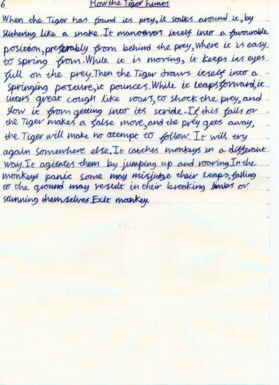 6
How the Tiger hunts
When the Tiger has found its prey, it scales around it, by
slithering like a snake. It manovers itself into a favourable
position, preferably from behind the prey, where it is easy
to spring from. While it is in moveing, it keeps its eyes
full on the prey. Then the Tiger draws itself into a
springing posture, it pounces. While it leaps forward, it
uters great cough like roars, to shock the prey, and
slow it from getting into its stride. If this fails or
the Tiger makes a false move, and the prey gets away,
the Tiger will make no attempt to follow. It will try
again somewhere else. It catches monkeys in a different
way. It agitates them by jumping up and roaring. In the
monkeys panic some may misjudge their leaps, falling
to the ground may result in their breaking limbs or
stunning themselves. Exit monkey.